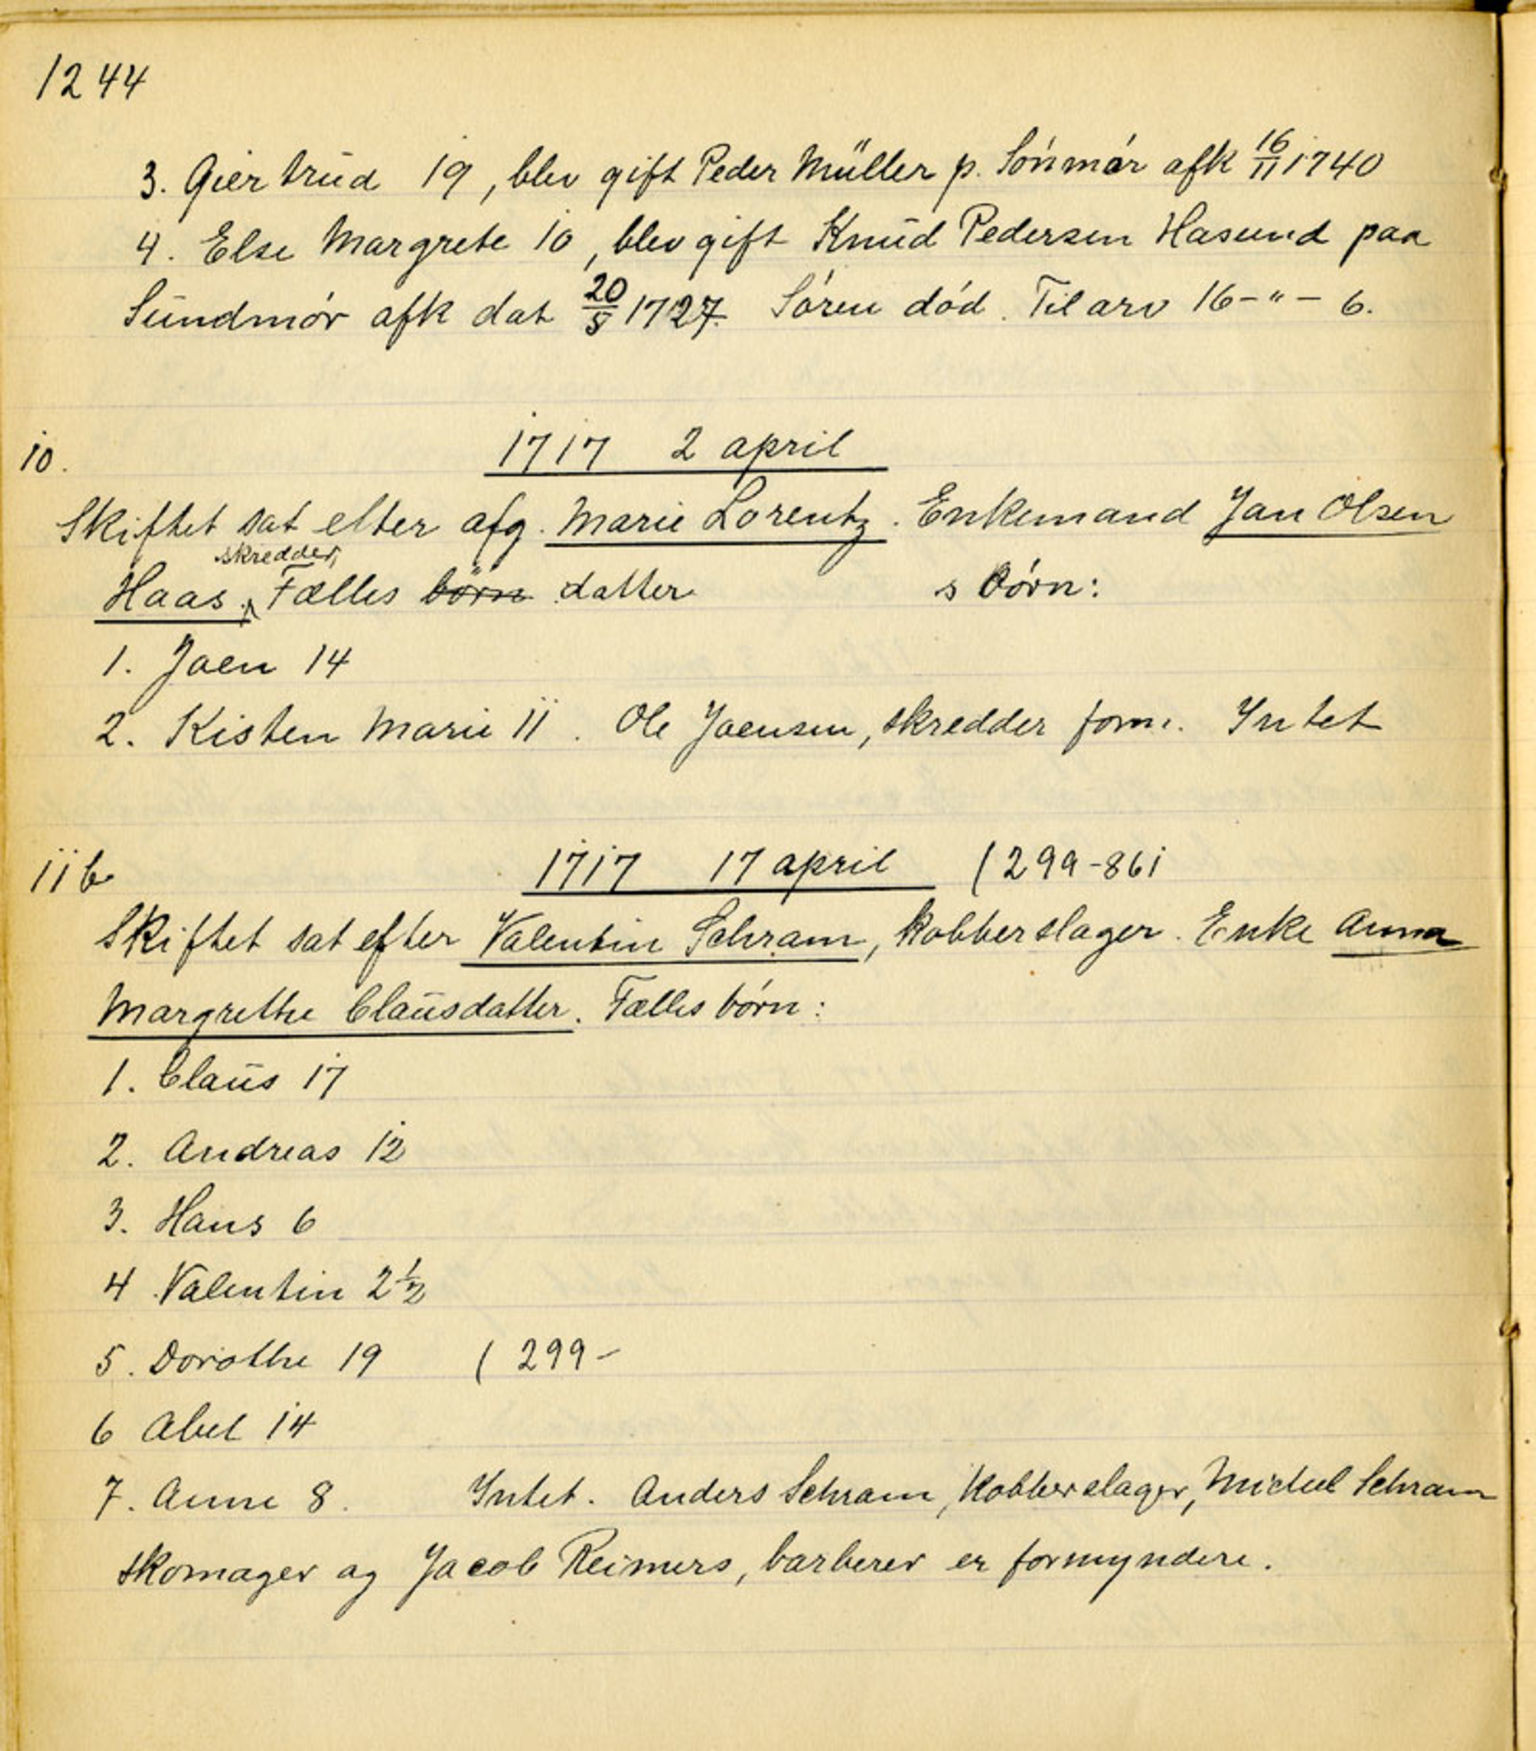 1244
3. Giertrud 19, blev gift Peder Müller p. Sönmör afk 16/11 1740
4. Else Margrete 10, blev gift Knud Pedersen Hasund paa
Sundmör afk dat 20/5 1727. Sören död. Til arv 16-"-6.
10. 1717 2 april
Skiftet sat efter afg. Marie Lorentz. Enkemand Jan Olsen
skredder,
Haas. Fælles börn datter s börn:
1. Joen 14
2. Kisten Marie 11. Ole Joensen, skredder form. Intet
11b 1717 17 april (299-861
Skiftet sat efter Valentin Schram, kobberslager. Enke Anna
Margrethe Clausdatter. Fælles börn:
1. Claus 17
2. Andreas 12
3. Hans 6
4 Valentin 2 1/2
5. Dorothe 19 (299-
6 Abel 14
7. Anne 8. Intet. Anders Schram, Kobberslager, Michel Schram
skomager og Jacob Reimers, barberer er formyndere.